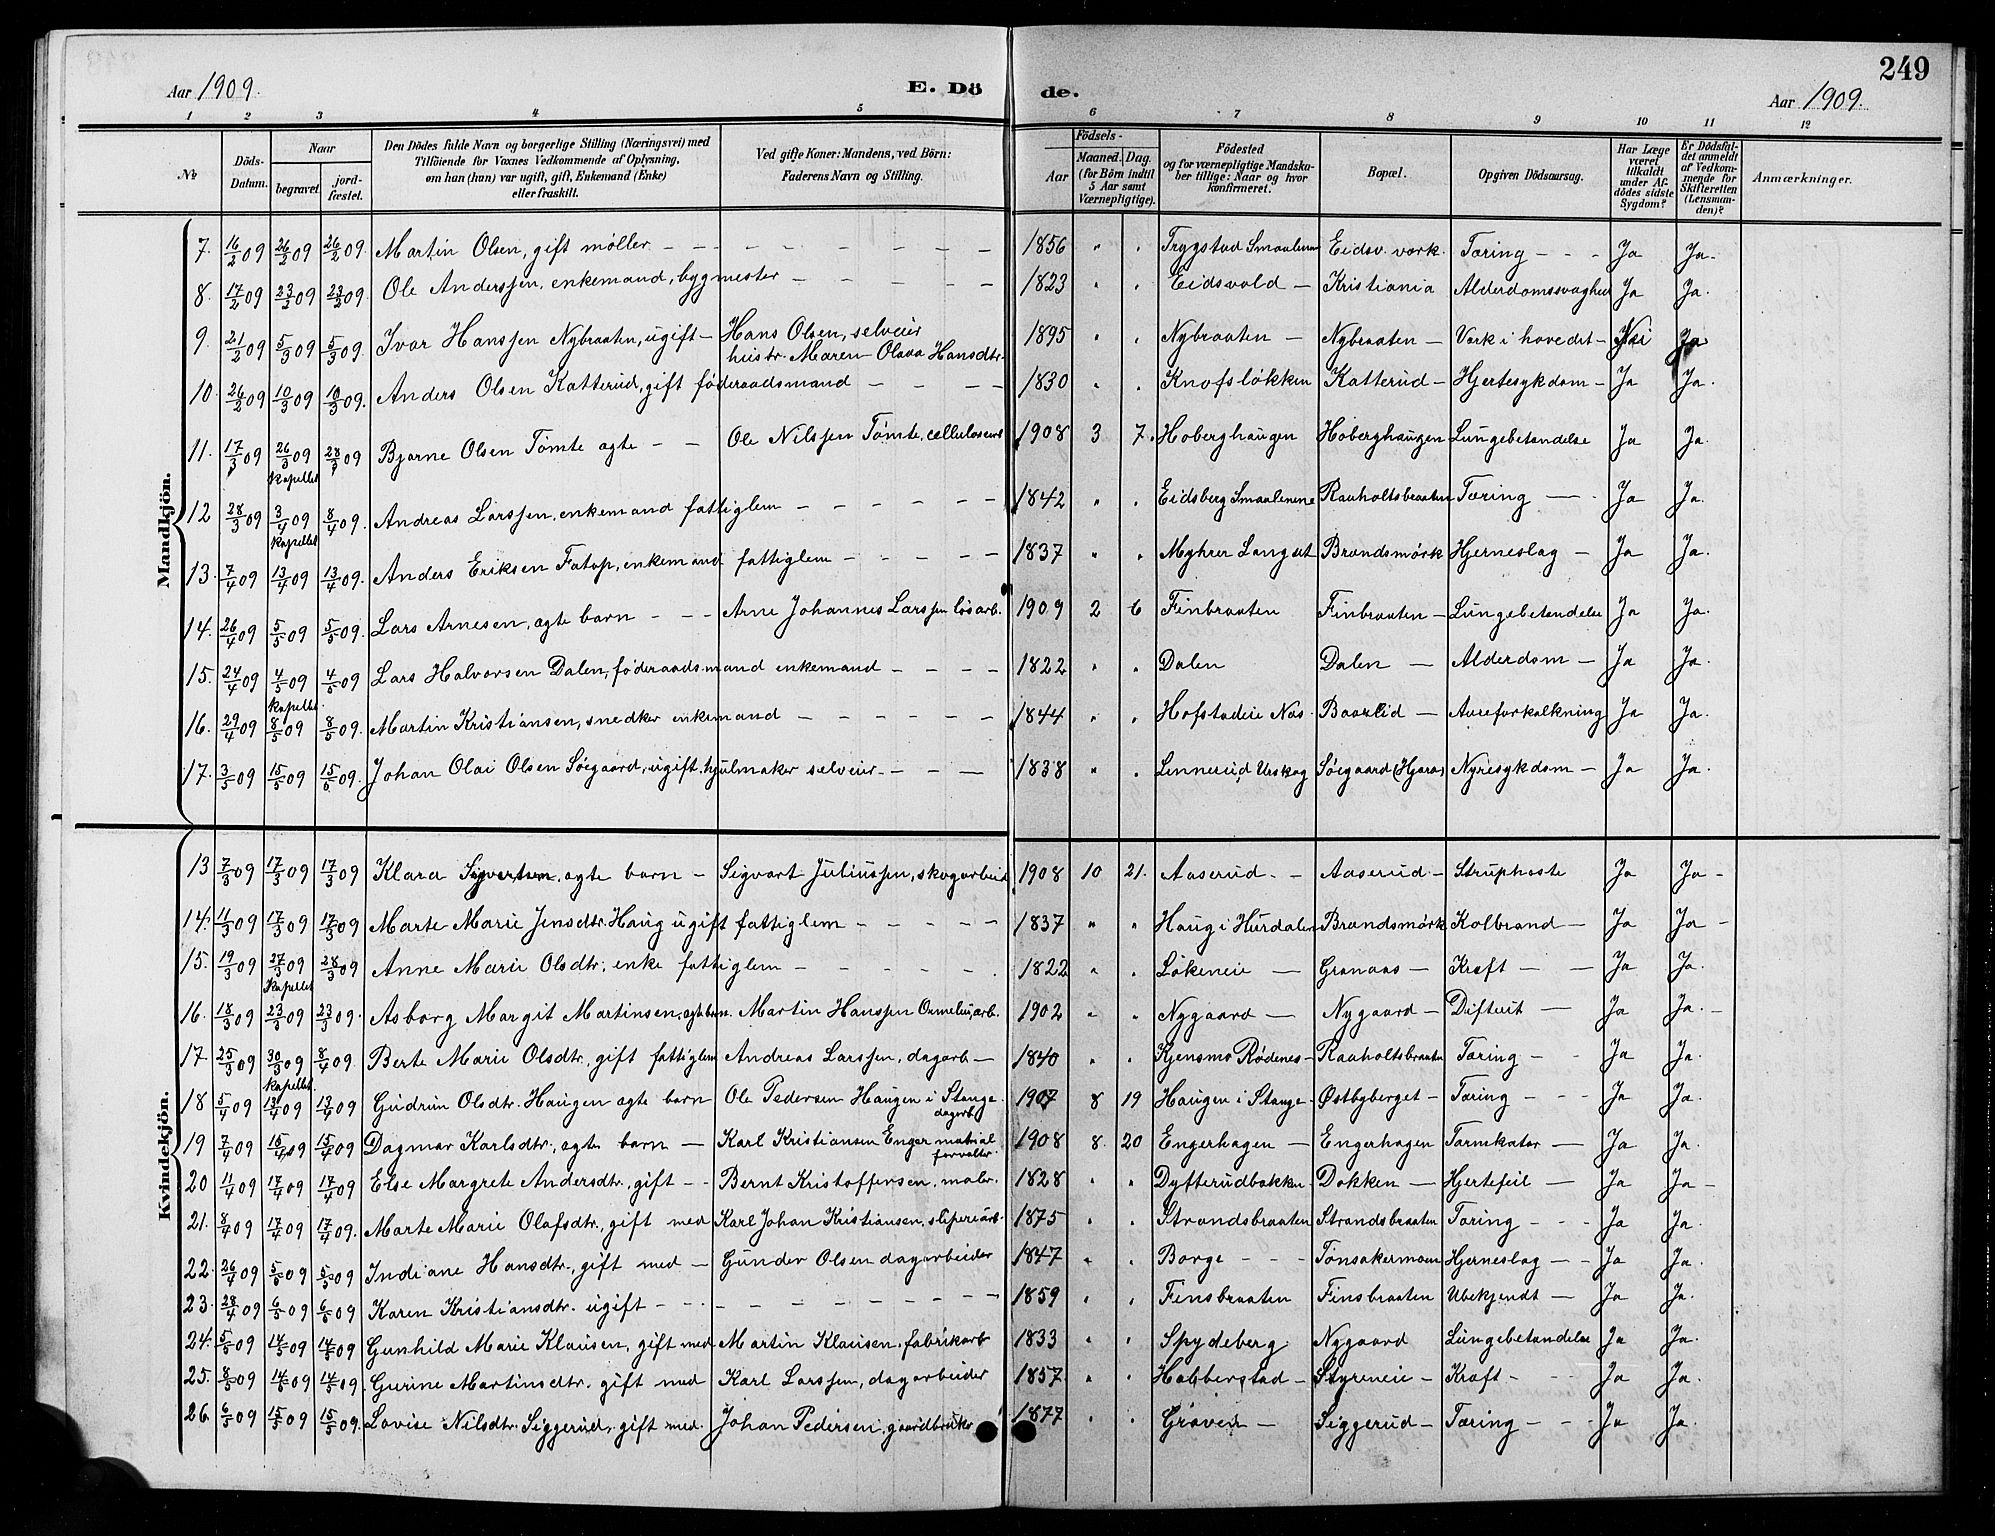 249
Aar 1909.
E. Dö
de.
Aar 1909.
1 2 3 4 5 6 7 8 9 10 11 12
No
Döds-Datum.
Naar
begravet.
jord-fæstet.
Den Dödes fulde Navn og borgerlige Stilling (Næringsvei) med Tilföiende for Voxnes Vedkommende af Oplysning, om han (hun) var ugift, gift, Enkemand (Enke) eller fraskilt.
Ved gifte Koner: Mandens, ved Börn: Faderens Navn og Stilling.
Födsels-
Aar
Maaned. Dag.
(for Börn indtil 5 Aar samt Værnepligtige).
Födested og for værnepligtige Mandskaber tillige: Naar og hvor konfirmeret.
Bopæl.
Opgiven Dödsaarsag.
Har Læge været tilkaldt under Afdödes sidste Sygdom?
Er Dödsfaldet anmeldt af Vedkommende for Skifteretten (Lensmanden)?
Anmærkninger.
Mandkjön.
7. 16/2 09 26/2 09 26/2 09. Martin Olsen, gift møller - - - 1856 " " Trygstad Smaalenene Eidsv. værk. Tæring - - - Ja Ja -
8. 17/2 09 23/2 09 23/2 09. Ole Anderssen, enkemand, bygmester - - - 1823 " " Eidsvold - Kristiania Alderdomssvaghed Ja Ja.
9. 21/2 09 5/3 09 5/3 09. Ivar Hanssen Nybraaten, ugift - Hans Olsen, selveier 1895 " " Nybraaten - Nybraaten - Værk i hovedet - Nei Ja
hustr. Maren Olava Hansdtr.
10. 26/2 09 10/3 09 10/3 09. Anders Olsen Katterud, gift føderaadsmand - - - 1830 " " Knofsløkken Katterud - Hjertesykdom - Ja Ja.
11. 17/3 09 26/3 09 28/3 09 Bjarne Olsen Tømte ægte - - Ole Nilssen Tømte, 1908 3 7. Hoberghaugen Hoberghaugen Lungebetændelse Ja Ja.
kapellet
12 28/3 09 3/4 09 8/4 09. Andreas Larssen, enkemand fattiglem - - - 1842 " " Eidsberg Smaalenene Raaholtsbraaten Tæring - Ja Ja.
kapellet
13. 7/4 09 13/4 09 13/4 09. Anders Eriksen Fatop, enkemand fattiglem - - - 1837 " " Myhrer Langset Brændsmørk Hjerneslag - Ja Ja.
14. 26/4 09 5/5 09 5/5 09. Lars Arnesen, ægte barn - - - Arne Johannes Larssen løsarb. 1909 2 6 Finbraaten Finbraaten - Lungebetændelse Ja Ja.
15. 24/4 09 4/5 09 4/5 09 Lars Halvorsen Dalen, føderaadsmand enkemand - - - 1822 " " Dalen Dalen - Alderdom - Ja Ja.
kapellet.
16. 29/4 09 8/5 09 8/5 09. Martin Kristiansen, snedker enkemand - - - 1844 " " Hofstadeie Næs - Baarlid - Aareforkalkning Ja Ja.
17. 3/5 09 15/5 09 15/5 09. Johan Olai Olsen Søegaard, ugift, hjulmaker selveier - - - 1838 " " Lennerud Urskog Søegaard Nyresykdom - Ja Ja.
Kvindekjön.
13 7/3 09 17/3 09 17/3 09 Klara Sigvartsen, ægte barn - Sigvart Juliussen, skogarbeid 1908 10 21. Aaserud - - Aaserud - Struphoste Ja Ja -
14. 11/3 09 17/3 09 17/3 09 Marte Marie Jensdtr. Haug ugift fattiglem - - - 1837 " " Haug i Hurdalen Brændsmørk Kolbrand - Ja Ja -
15. 19/3 09 27/3 09 28/3 09 Anne Marie Olsdtr, enke fattiglem - - - 1822 " " Løkeneie - Granaas - Kræft - - Ja Ja.
kapellet
16. 18/3 09 23/3 09 23/3 09. Asborg Margit Martinsen, ægte barn. Martin Hanssen Ormeliarb. 1902 " " Nygaard - Nygaard - Difterit - Ja Ja. -
17 25/3 09 30/3 09 8/4 09 Berte Marie Olsdtr, gift fattiglem Andreas Larssen, dagarb - 1840 " " Kjensmo Rødenes - Raaholtsbraaten Tæring - - Ja Ja.
kapellet.
18 5/4 09 13/4 09 13/4 09 Gudrun Olsdtr. Haugen ægte barn Ole Pedersen Haugen i Stange 1907 8 19 Haugen i Stange - Østbyberget - Tæring - - - Ja Ja.
dagarb.
19 7/4 09 15/4 09 15/4 09 Dagmar Karlsdtr, ægte barn - Karl Kristiansen Enger matrial 1908 8. 20 Engerhagen - Engerhagen Tarmkatar - Ja Ja.
forvaltr.
20 11/4 09 17/4 09 17/4 09 Else Margrete Andersdtr, gift - - Bernt Kristoffersen, maler. 1828 " " Dyfterudbakken Dokken - Hjertefeil - Ja Ja -
21. 8/4 09 17/4 09 17/4 09. Marte Marie Olafsdtr, gift med Karl Johan Kristiansen, sliperiarb. 1875 " " Strandsbraaten Strandsbraaten Tæring - - - Ja Ja.
22. 26/4 09 5/5 09 5/5 09 Indiane Hansdtr, gift med - Gunder Olsen dagarbeider 1847 " " Borge - - - Tønsakermoen Hjerneslag - - Ja Ja.
23. 28/4 09 6/5 09 6/5 09 Karen Kristiansdtr. ugift - - - 1859 " " Finsbraaten Finsbraaten Ubekjendt - Ja Ja.
24. 5/5 09 14/5 09 14/5 09 Gunhild Marie Klausen, gift med Martin Klausen, fabrikarb 1833 " " Spydeberg Nygaard Lungebetændelse Ja Ja.
25. 8/5 09 14/5 09 14/5 09. Gurine Martinsdtr. gift med Karl Larssen, dagarbeider 1857 " " Habberstad - Styreneie - Kræft - - Ja Ja.
26. 6/5 09 15/5 09 15/5 09. Lovise Nilsdtr. Siggerud, gift med. Johan Pedersen, gaardbruker 1877 " " Graven - Siggerud - Tæring - - - Ja Ja.